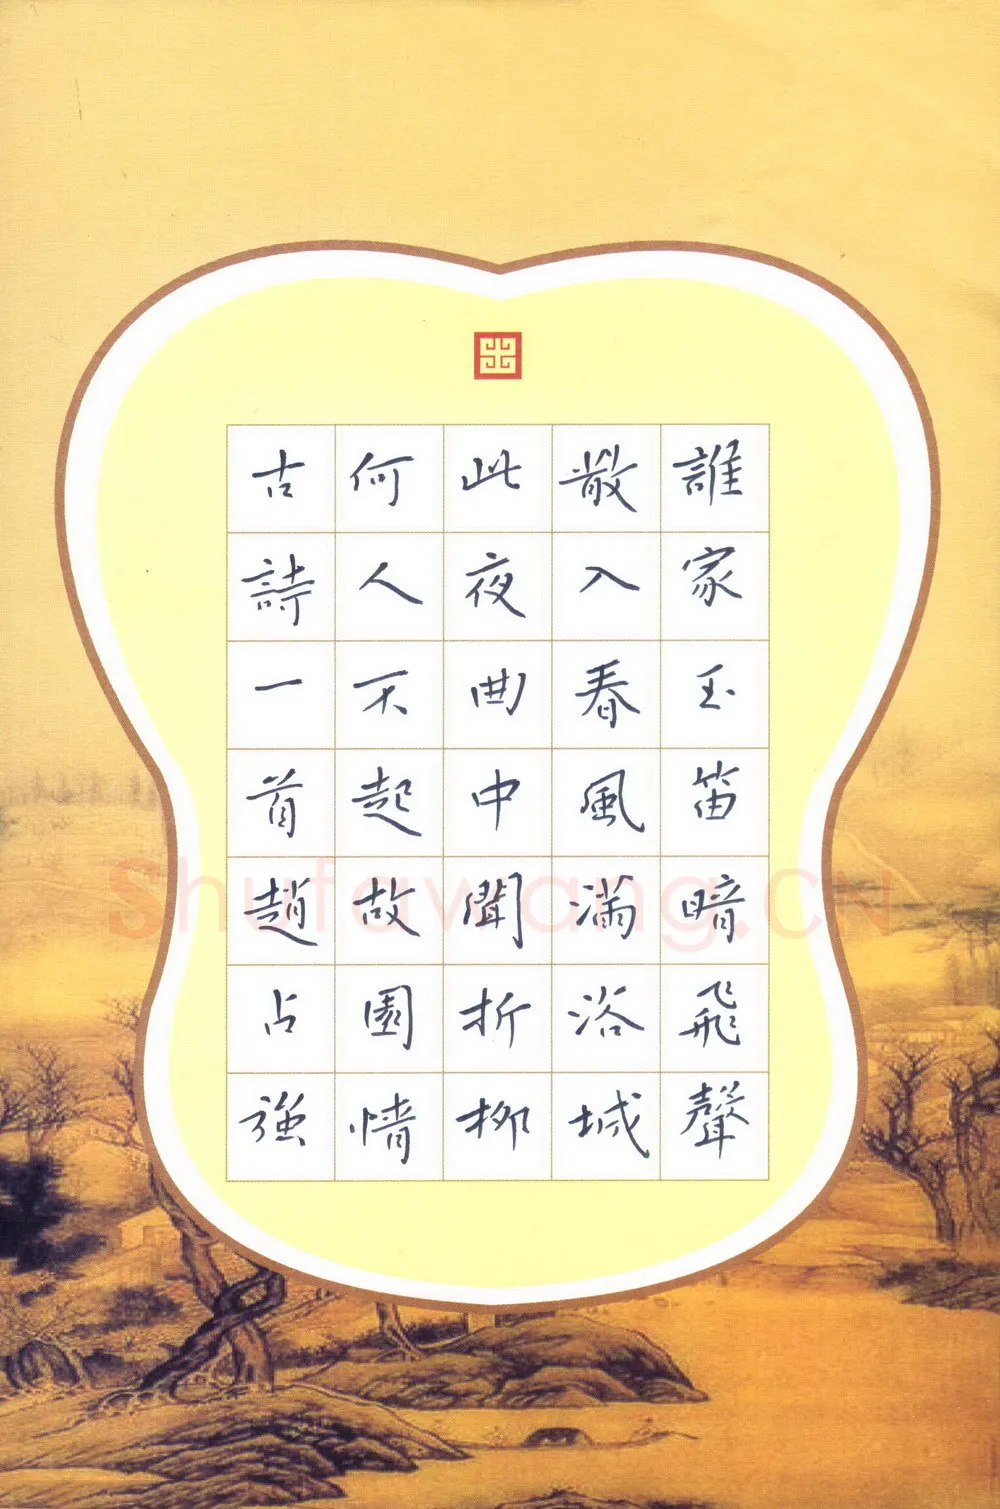 誰家玉笛暗飛聲
散入春風滿洛城
此夜曲中聞折柳
何人不起故園情
古詩一首趙占強
Shufawang.CN